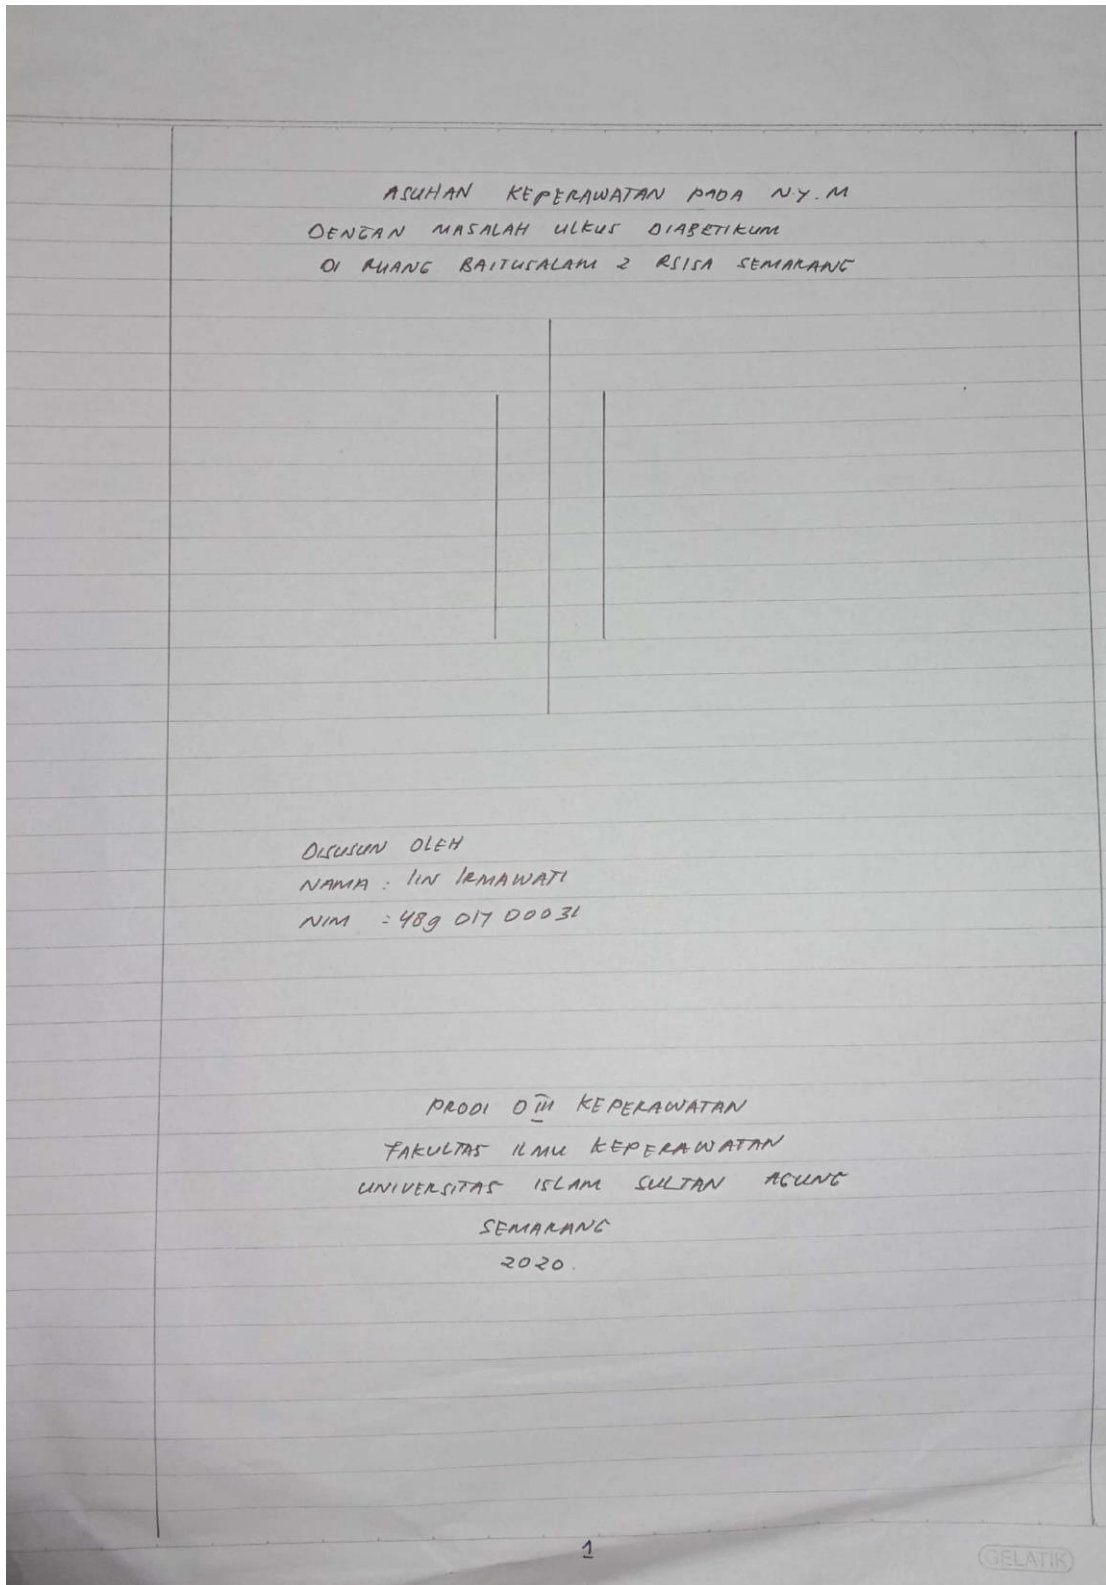 ASUHAN KEPERAWATAN PADA N.Y.M
DENGAN MASALAH ULKUS DIABETIKUM
DI RUANG BAITUSALAM 2 RSISA SEMARANG
DISUSUN OLEH
NAMA : IIN IRMAWATI
NIM : 489 017 00031
PRODI D III KEPERAWATAN
FAKULTAS ILMU KEPERAWATAN
UNIVERSITAS ISLAM SULTAN AGUNG
SEMARANG
2020.
1
GELATIK